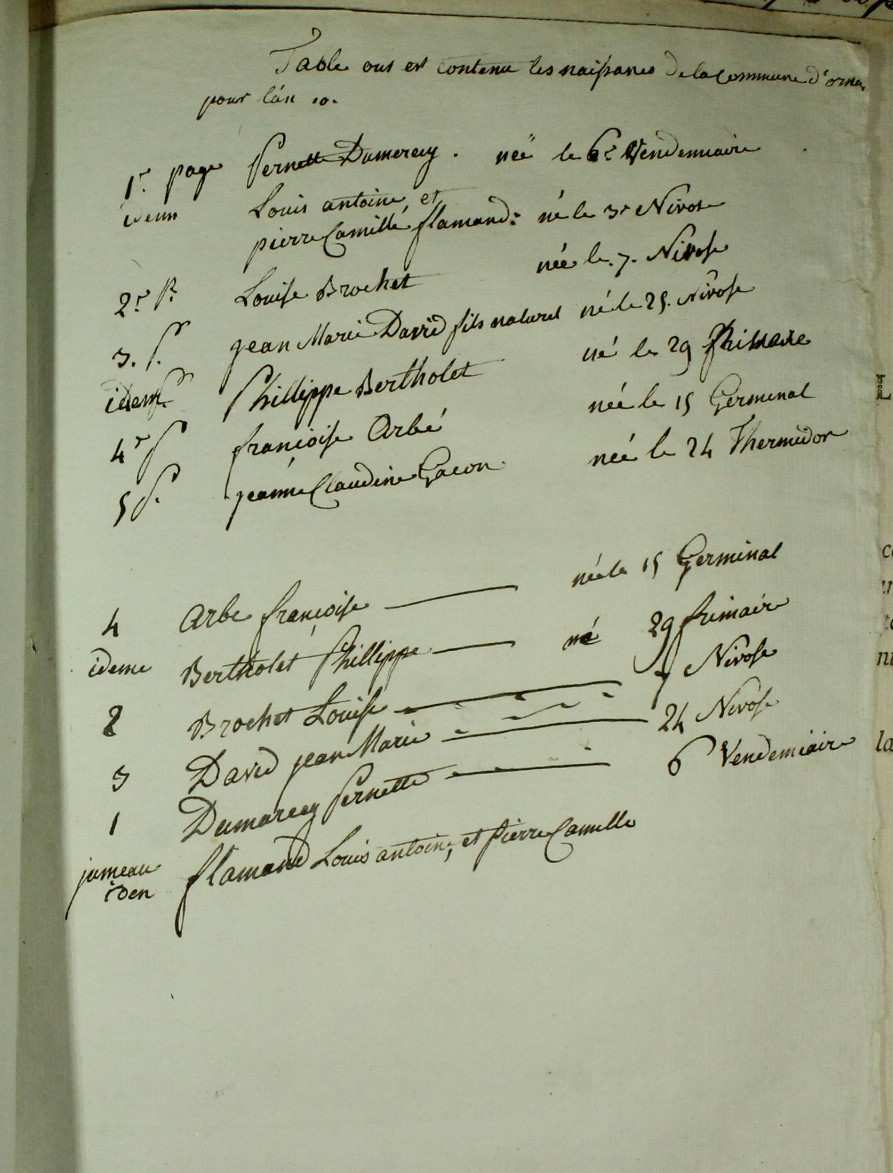 Table ous est contenu les naissances de la Commune d'orna
pour l'an 10.
1r. page pernette Dumerecy. néé le 6e Vendemiaire
idem Louis antoine, et
pierre Camille flamand: né le 3e Nivose
2r. p. Louise Brochet née le .7. Nivose
3. p. jean Marie David fils naturel né le 25. Nivôse
idem p. Phillippe Bertholet né le 29 frimaire
4r p francoise Arbé née le 15 Germinal
5 p. jeanne Claudine Gacon née le 24 Thermidor
4 Arbe francoise née le 15 Germinal
ideme Bertholet Phillippe né 29 frimaire
2 Brochet Louise 7 Nivose
3 David jean Marie 24 Nivôse
1 Dumarecy pernette 6 Vendemiaire
jumeau
iden flamand Louis antoine, et pierre Camille